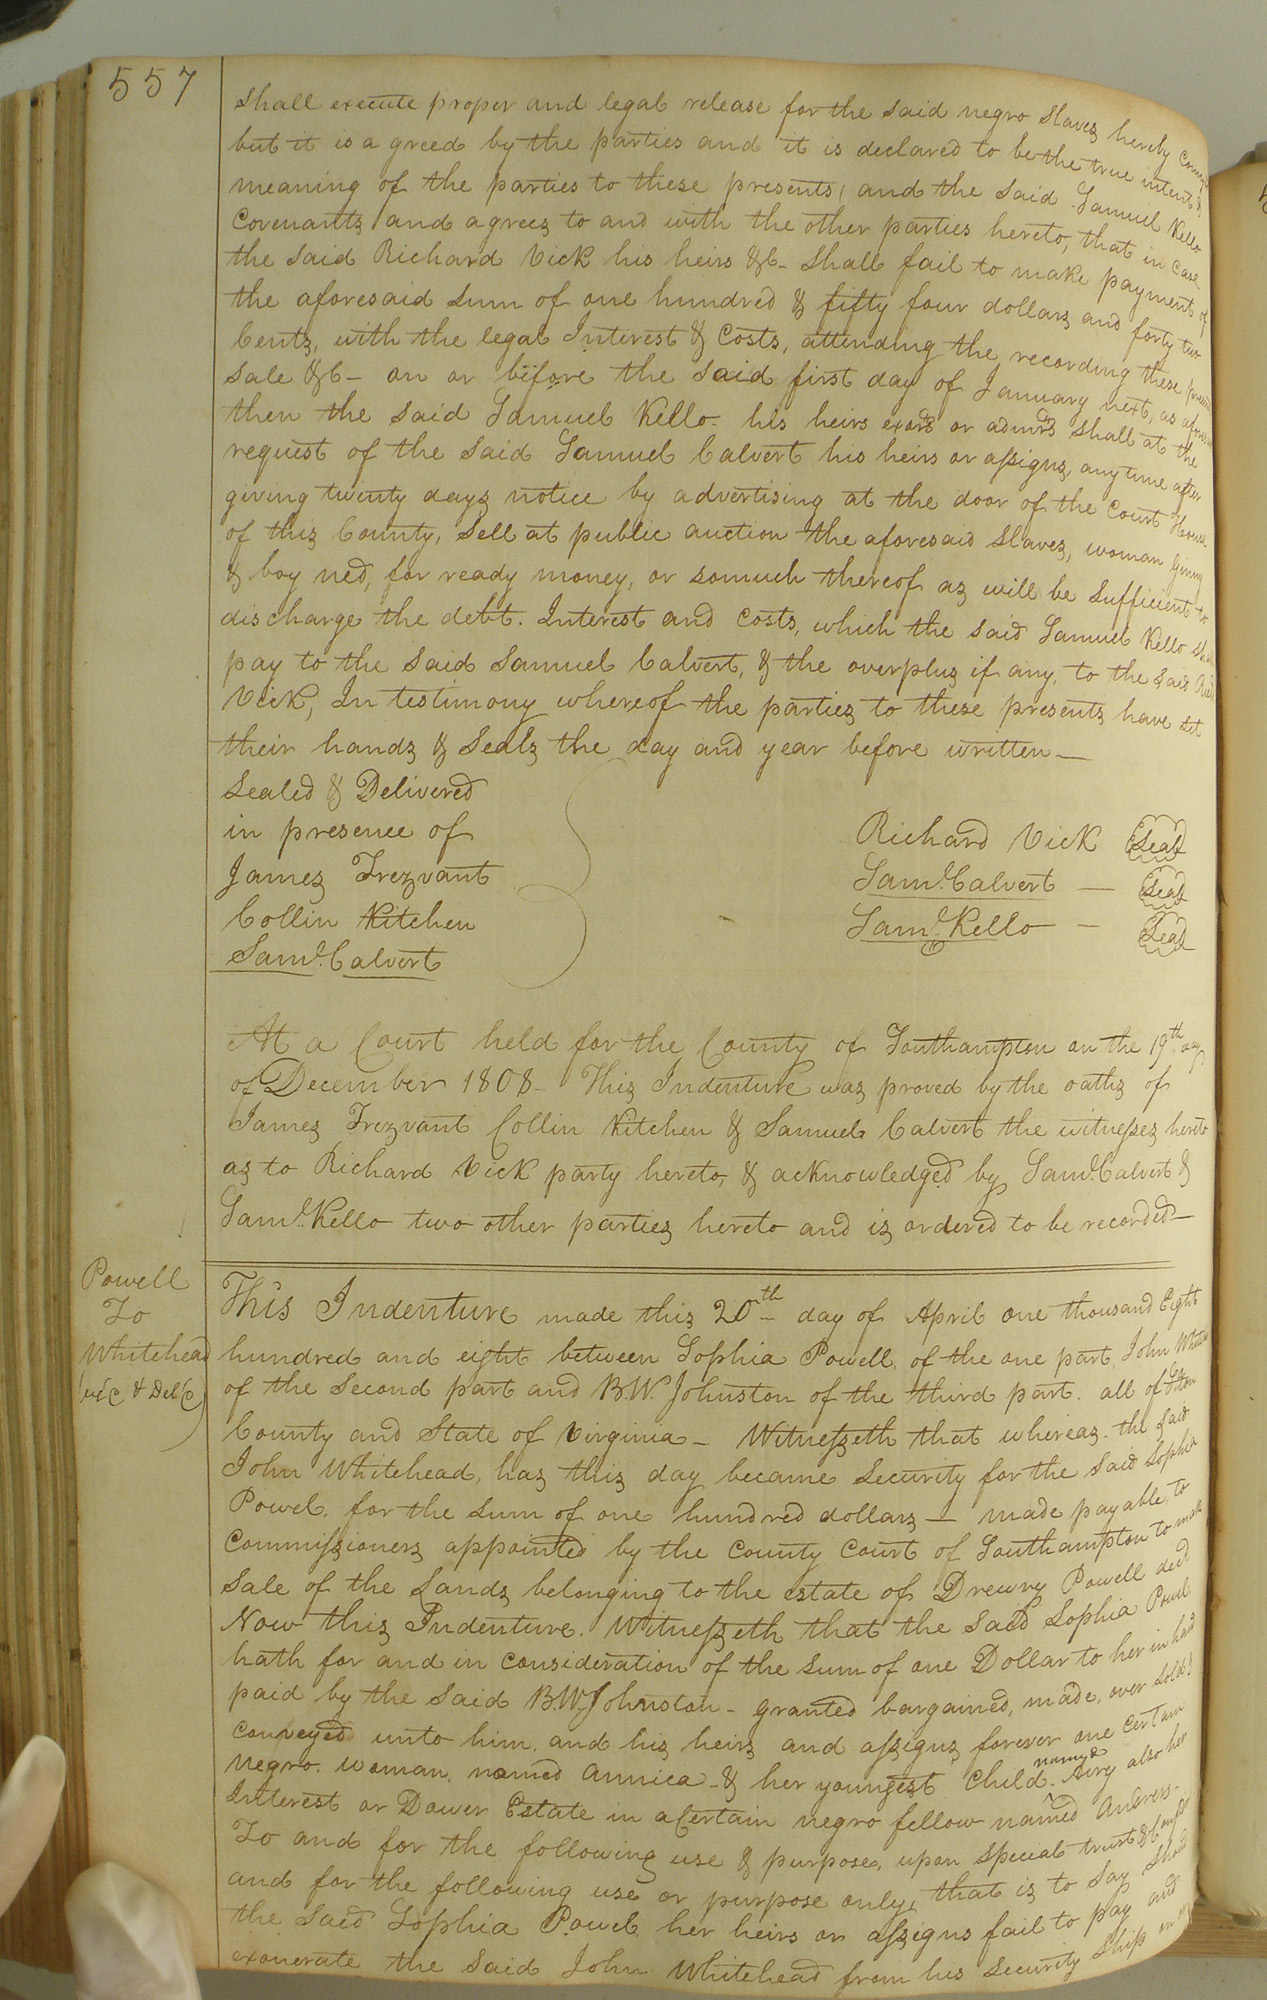 557
shall execute proper and legal release for the said negro slaves hereby
but it is agreed by the parties and it is declared to be the true intent &
meaning of the parties to these presents, and the said Samuel Kello
Covenants and agrees to and with the other parties hereto, that in case
the said Richard Vick his heirs &c- shall fail to make payment of
the aforesaid sum of one hundred & fifty four dollars and forty two
Cents, with the legal Interest & Costs, attending the recording these
sale &c- on or before the said first day of January next, as
then the said Samuel Kello his heirs exors or admrs shall at the
request of the said Samuel Calvert his heirs or assigns, any time after
giving twenty days notice by advertising at the door of the Court House
of this County, sell at public auction the aforesaid slaves, woman Ginny
& boy ned, for ready money, or somuch thereof as will be sufficient to
discharge the debt. Interest and Costs, which the said Samuel Kello
pay to the said Samuel Calvert, & the overplus if any, to the said
Vick, In testimony whereof the parties to these presents have set
their hands & Seals the day and year before written—
Sealed & Delivered
in presence of
James Trezvant
Collin Kitchen
Saml. Calvert
Richard Vick Seal
Saml. Calvert — Seal
Saml. Kello — Seal
At a Court held for the County of Southampton on the 19th day
of December 1808- This Indenture was proved by the oaths of
James Trezvant Collin Kitchen & Samuel Calvert the witnesses hereto
as to Richard Vick party hereto, & acknowledged by Saml. Calvert &
Saml. Kello two other parties hereto and is ordered to be recorded—
Powell
To
Whitehead
&c & Del'd
This Indenture made this 20th day of April one thousand Eight
hundred and eight between Sophia Powell, of the one part, John
of the second part and B.W. Johnston of the third part. all of
County and State of Virginia— Witnesseth that whereas the said
John Whitehead, has this day became security for the said Sophia
Powel, for the sum of one hundred dollars— made payable, to
Commissioners appointed by the County Court of Southampton to make
sale of the Lands belonging to the estate of Drewry Powell decd
Now this Indenture. Witnesseth that the said Sophia Powel
hath for and in consideration of the sum of one Dollar to her in hand
paid by the said B.W. Johnston- granted bargained, made, over sold &
conveyed unto him and his heirs and assigns forever one certain
negro. woman, named Annica & her youngest Child named Airy also her
Interest or Dower Estate in a Certain negro fellow named Andrew-
To and for the following use & purpose, upon special trust &
and for the following use or purpose only, that is to say should
the said Sophia Powel her heirs or assigns fail to pay and
exonerate the said John Whitehead from his security ship